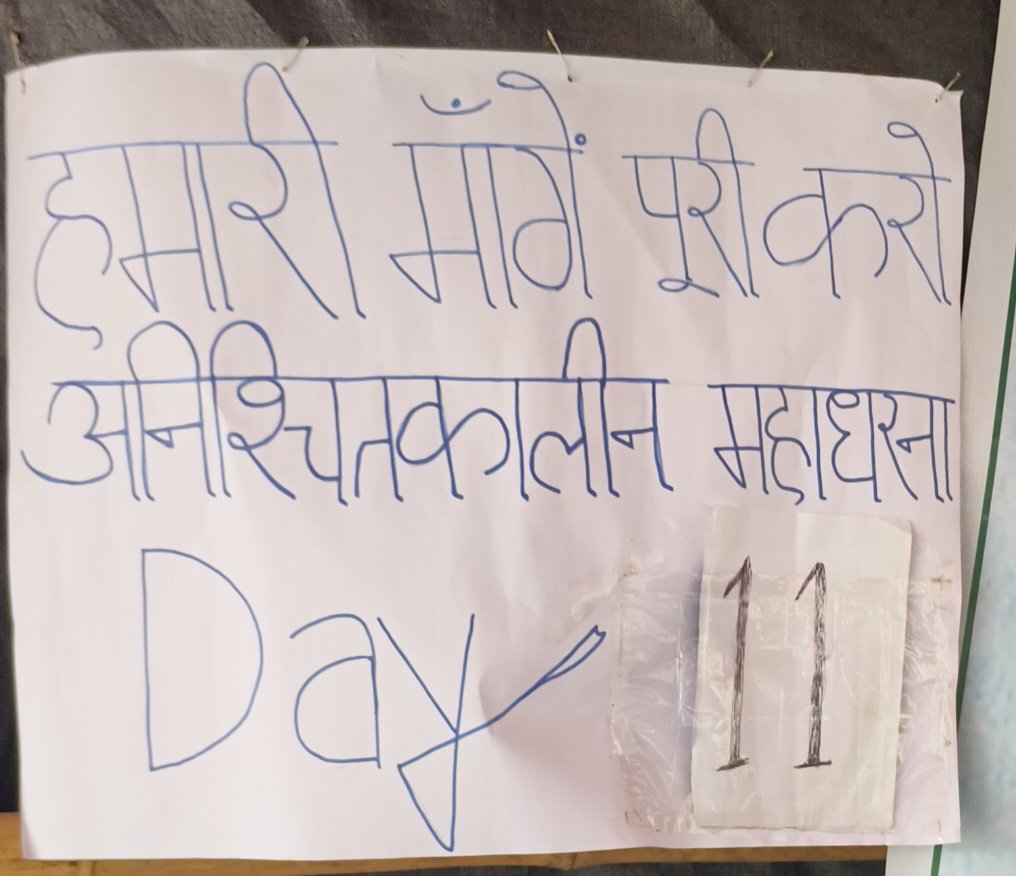 हमारी माँगें पूरी करो
अनिश्चितकालीन महाधरना
Day 11